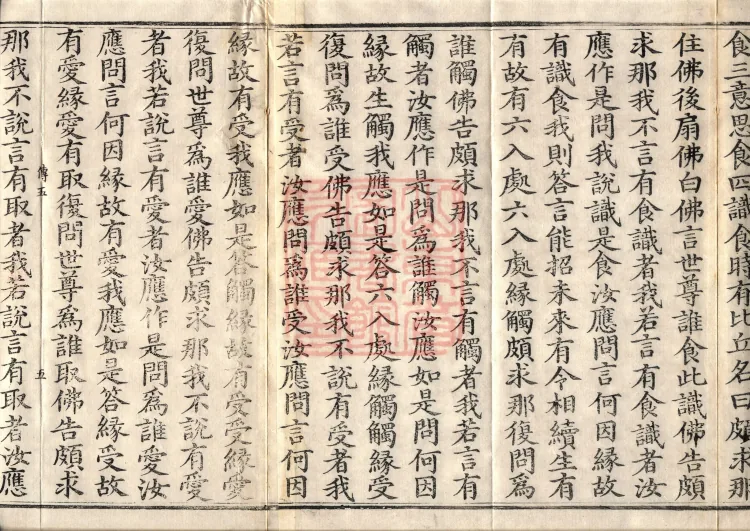 食三意思食四識食時有比丘名曰頗求那
住佛後扇佛白佛言世尊誰食此識佛告頗
求那我不言有食識者我若言有食識者汝
應作是問我說識是食汝應問言何因緣故
有識食我則荅言能招未來有令相續生有
有故有六入處六入處緣觸頗求那復問為
誰觸佛告頗求那我不言有觸者我若言有
觸者汝應作是問為誰觸汝應如是問何因
緣故生觸我應如是荅六入處緣觸觸緣受
復問為誰受佛告頗求那我不說有受者我
若言有受者汝應問為誰受汝應問言何因
緣故有受我應如是荅觸緣故有受受緣愛
復問世尊為誰愛佛告頗求那我不說有愛
者我若說言有愛者汝應作是問為誰愛汝
應問言何因緣故有愛我應如是荅緣受故
有愛緣愛有取復問世尊為誰取佛告頗求
傳五 五
那我不說言有取者我若說言有取者汝應